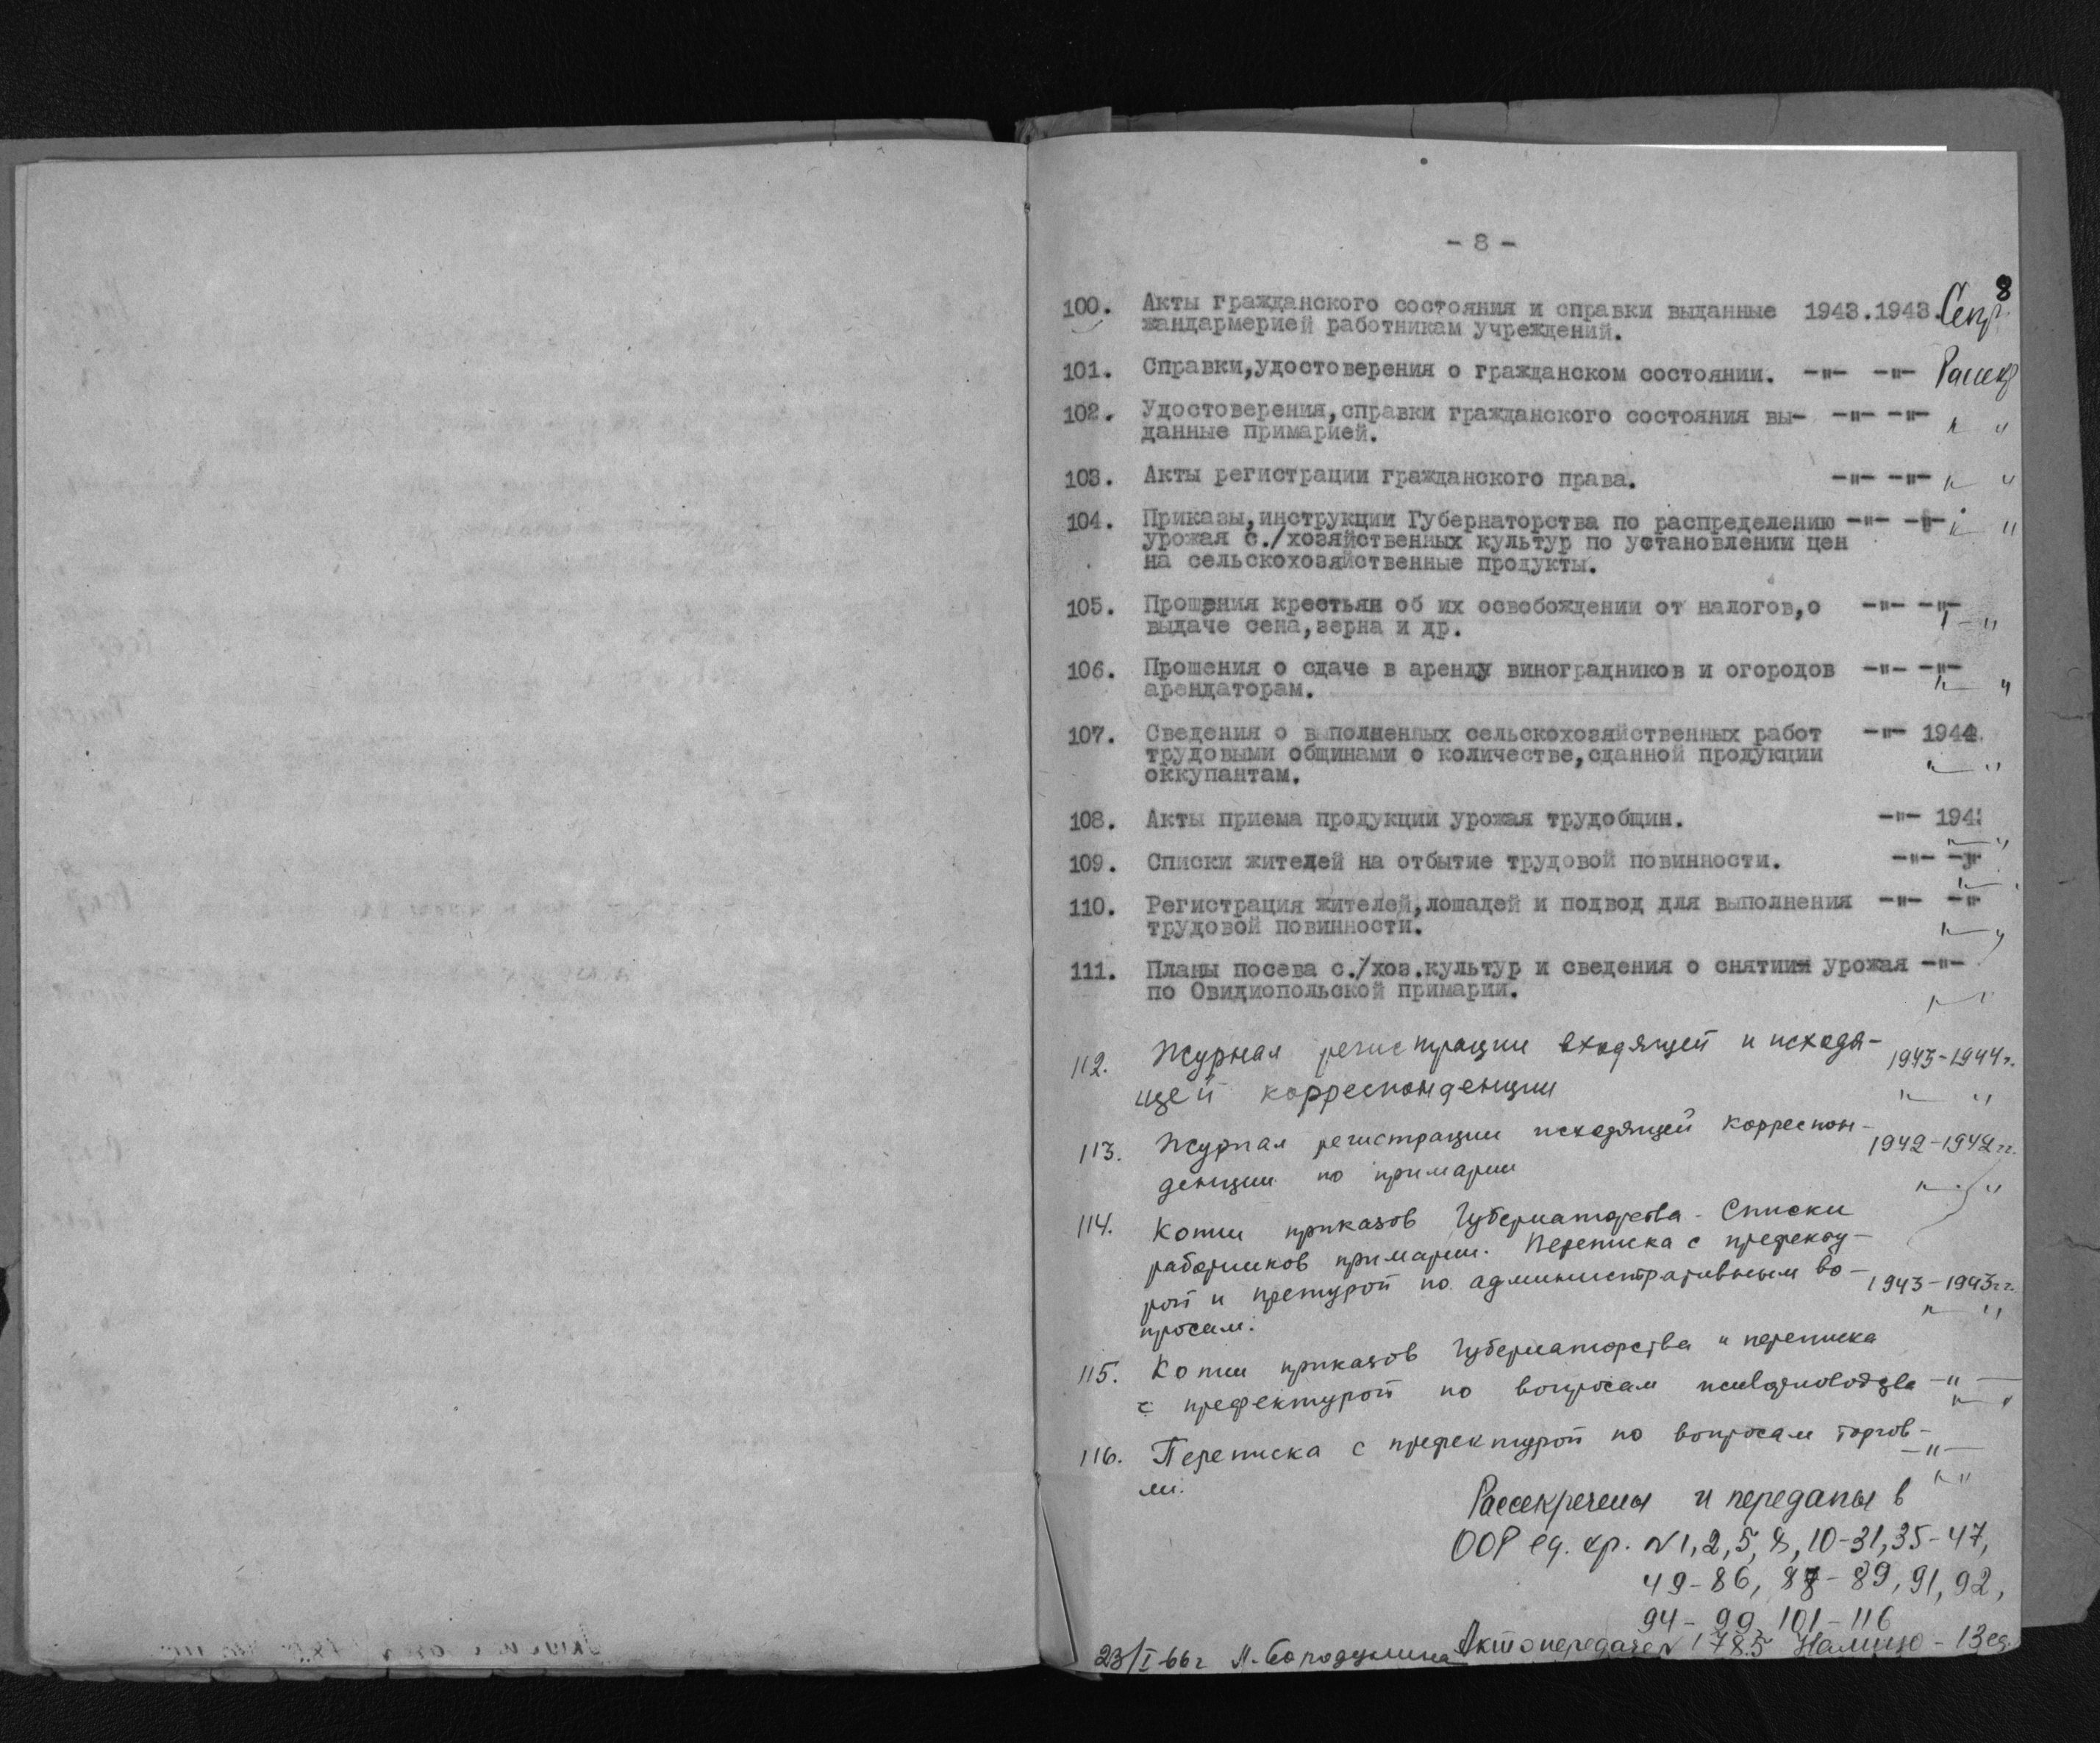 - 8 -
8
100. Акты гражданского состояния и справки выданные 1943.1943. Секр.
жандармерией работникам учреждений.
101. Справки,удостоверения о гражданском состоянии. -"- -"- Рассекр
102. Удостоверения,справки гражданского состояния вы- -"- -"- " "
данные примарией.
103. Акты регистрации гражданского права. -"- -"- " "
104. Приказы,инструкции Губернаторства по распределению -"- -"- " "
урожая с./хозяйственных культур по установлении цен
на сельскохозяйственные продукты.
105. Прошения крестьян об их освобождении от налогов,о -"- -"-
выдаче сена,зерна и др. " "
106. Прошения о сдаче в аренду виноградников и огородов -"- -"-
арендаторам. " "
107. Сведения о выполненных сельскохозяйственных работ -"- 1944.
трудовыми общинами о количестве,сданной продукции
оккупантам. " "
108. Акты приема продукции урожая трудобщин. -"-
" "
109. Списки жителей на отбытие трудовой повинности. -"- -"-
110. Регистрация жителей,лошадей и подвод для выполнения -"- -"-
трудовой повинности. " "
111. Планы посева с./хоз.культур и сведения о снятиии урожая -"-
по Овидиопольской примарии. " "
112. Журнал регистрации входящей и исходя- 1943-1944г.
щей корреспонденции " "
113. Журнал регистрации исходящей корреспон- 1942-1942гг.
денции по примарии " "
114. Копии приказов Губернаторства. Списки
работников примарии. Переписка с префекту-
рой и претурой по административным во- 1943-1943гг.
просам. " "
115. Копии приказов Губернаторства и переписка
с префектурой по вопросам -"-
" "
116. Переписка с префектурой по вопросам торгов- -"-
ли. " "
Рассекречены и переданы в
ООР ед. хр. N 1, 2, 5, 8, 10-31, 35-47,
49-86, 87-89, 91, 92,
94-99, 101-116
23/I-66г Акт о передаче N 1785 Налицо - 13 ед.